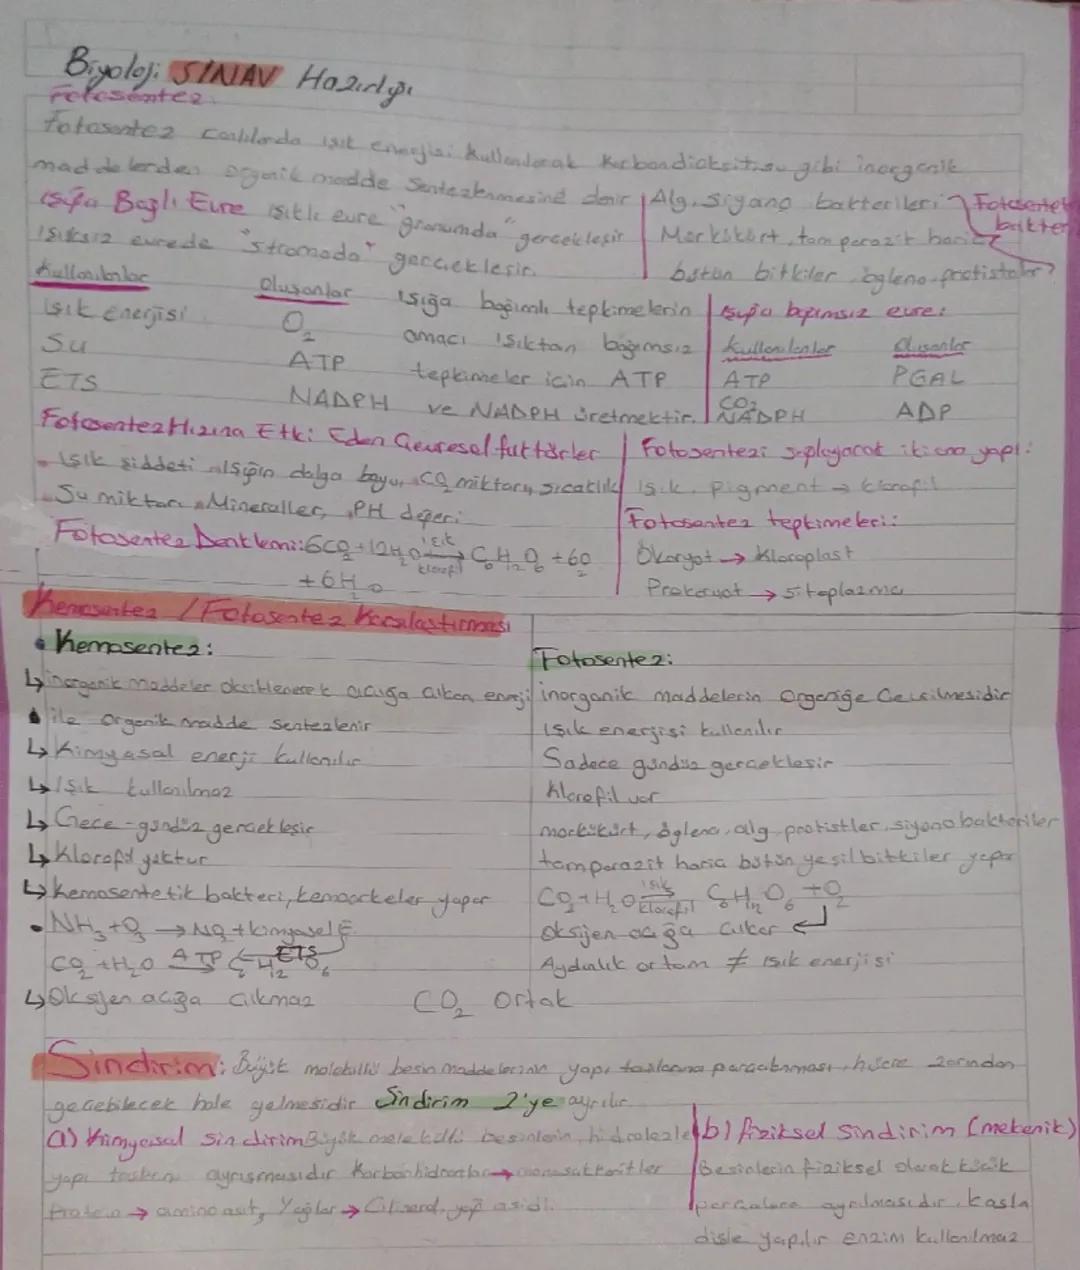 Biyoloji SINAV Hazırlığı
Fotosentez
Fotosentez canlılarda ışık enerjisi kullanılarak karbondioksit, su gibi inorganik
maddelerden organik madde sentezlenmesine denir
Işığa Bağlı Evre ışıklı evre "granumda" gerçekleşir
Işıksız evrede "stromada" gerçekleşir.
Alg, siyano bakterileri
Fotosentez
bakter
Mor kükürt, tam parazit hariç
bütün bitkiler öglena protistalar
Kullanılanlar Oluşanlar
Işık enerjisi O2
Su ATP
ETS NADPH
Işığa bağımlı tepkimelerin
amacı ışıktan bağımsız
tepkimeler için ATP
ve NADPH üretmektir.
Işığa bağımsız evre:
Kullanılanlar Oluşanlar
ATP PGAL
CO2
NADPH ADP
Fotosentez Hızına Etki Eden Çevresel faktörler
Işık şiddeti Işığın dalga boyu, CO2 miktarı, sıcaklık
Su miktarı Mineraller, PH değeri
Fotosentez Denklemi: 6CO2+12H2O ışık klorofil → C6H12O6 + 6O2
+6H2O
Fotosentezi sağlayacak iki ana yapı:
ışık, pigment → klorofil
Fotosentez tepkimeleri:
Ökaryot → Kloroplast
Prokaryot → sitoplazma
Kemosentez / Fotosentez Karşılaştırması
• Kemosentez:
↳ inorganik maddeler oksitlenerek açığa çıkan enerji
ile organik madde sentezlenir
↳ Kimyasal enerji kullanılır
↳ Işık kullanılmaz
↳ Gece-gündüz gerçekleşir
↳ Klorofil yoktur
↳ Kemosentetik bakteri, kemoarkeler yapar
• NH3+O2 → NO2 + kimyasal E.
CO2+H2O ATP ETS → C6H12O6
↳ Oksijen açığa çıkmaz
CO2 ortak
Fotosentez:
inorganik maddelerin Organiğe Çevrilmesidir
Işık enerjisi kullanılır
Sadece gündüz gerçekleşir
Klorofil var
morkükürt, öglena, alg, protistler, siyanobakteriler
tamparazit hariç bütün yeşil bitkiler yapar
CO2+H2O ışık klorofil → C6H12O6 +O2
Oksijen açığa çıkar
Aydınlık ortam ≠ ışık enerjisi
Sindirim: Büyük moleküllü besin maddelerinin yapı taşlarına parçalanması, hücre zarından
geçebilecek hale gelmesidir Sindirim 2'ye ayrılır
a) Kimyasal Sindirim Büyük moleküllü besinlerin, hidrolizle
yapı taşlarına ayrışmasıdır Karbonhidratlar → monosakkaritler
Protein → amino asit, Yağlar → Gliserol, yağ asidi.
b) fiziksel Sindirim (mekanik)
Besinlerin fiziksel olarak küçük
parçalara ayrılmasıdır. Kasla
dişle yapılır enzim kullanılmaz